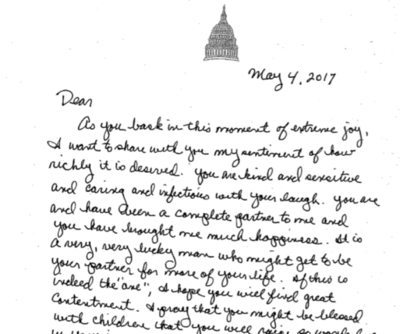 May 4, 2017
Dear
As you bask in this moment of extreme joy,
I want to share with you my sentiment of how
richly it is deserved. You are kind and sensitive
and caring and infectious with your laugh. You are
and have been a complete partner to me and
you have brought me much happiness. It is
a very, very lucky man who might get to be
your partner for more of your life. If this is
indeed the "one", I hope you will find great
contentment. I pray that you might be blessed
with children that you will raise